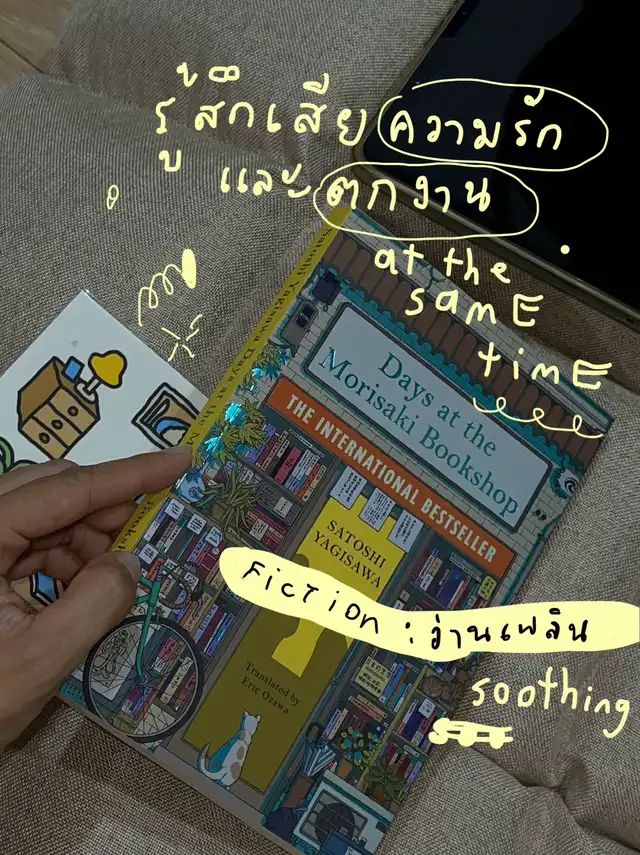 รู้สึกเสียความรัก
และตกงาน
at the
samE
timE
Satoshi Yagisawa Days at the M
Days at the
Morisaki Bookshop
THE INTERNATIONAL BESTSELLER
SATOSHI
YAGISAWA
Fiction : อ่านเพลิน
soothing
Translated by
Eric Ozawa